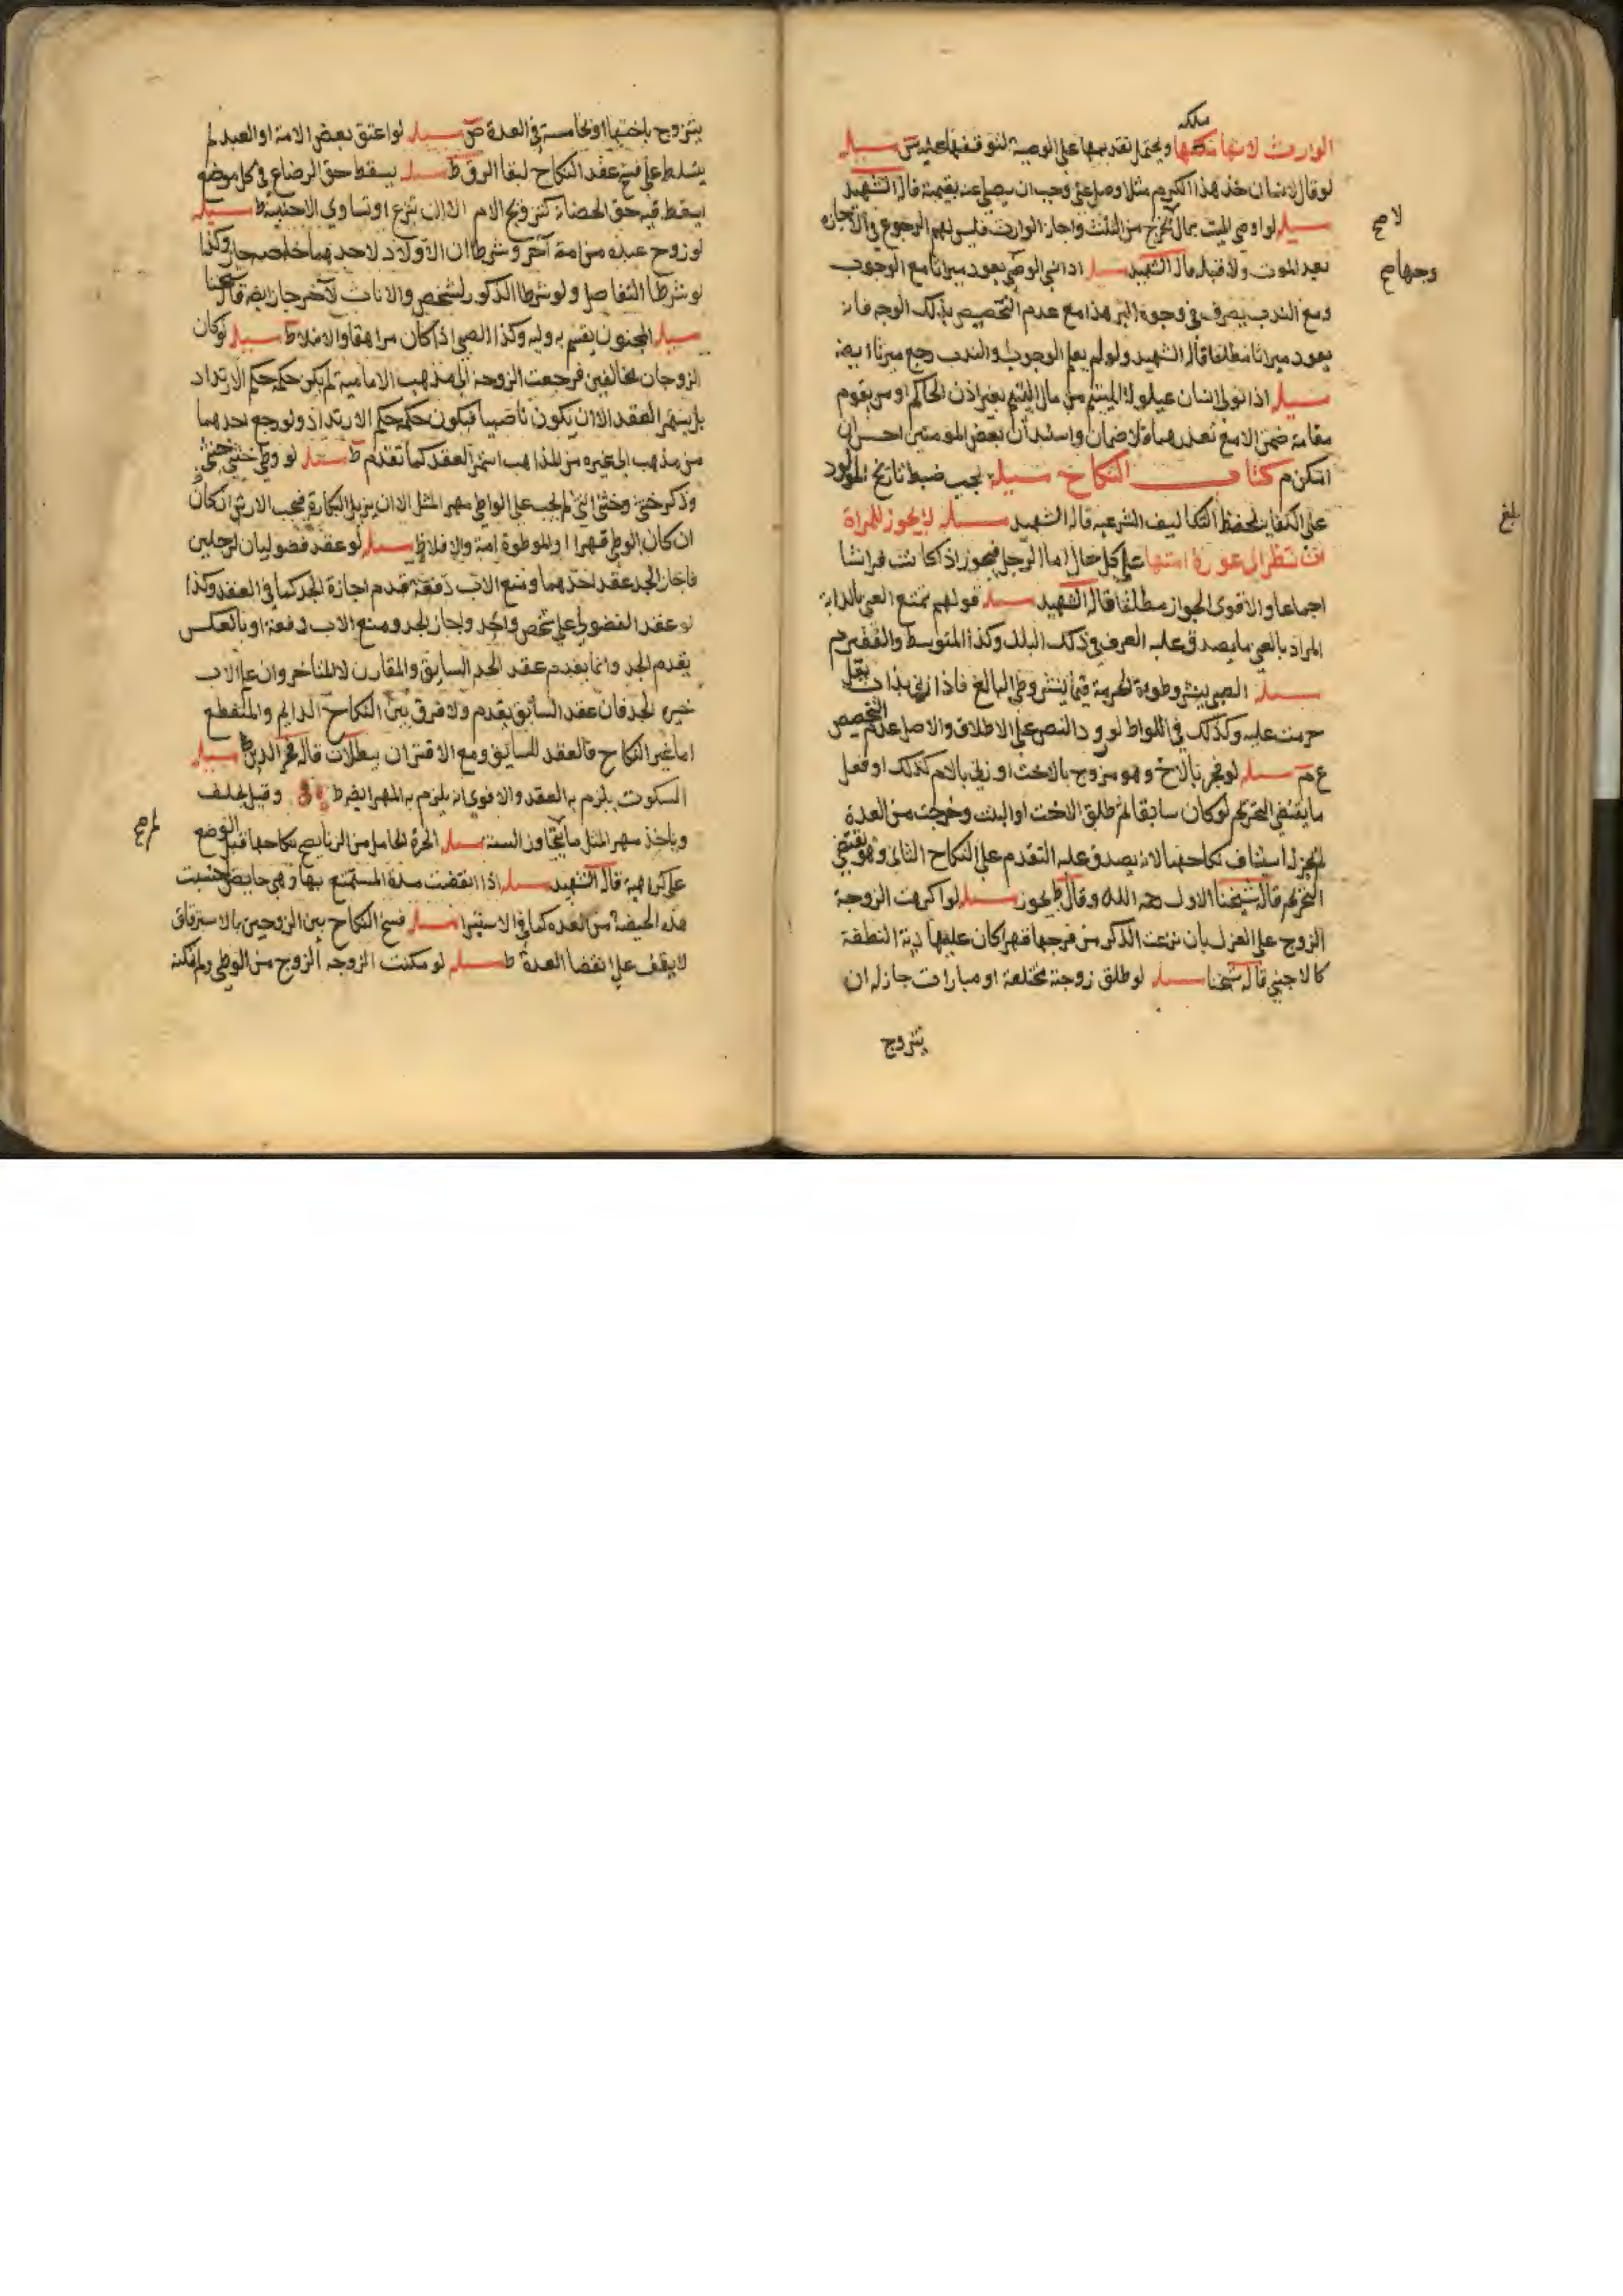 ملكه
الوارث لانها ويحتمل تقديمها على الوصية لتوقفها عليه س مسيلة
لو قال لانسان خذ هذا الكريم مثلا وصل عني وجب ان يصلي عنه بقيمته قاله الشهيد
مسيلة لو اوصى الميت بمال يخرج من الثلث واجاز الوارث فليس لهم الرجوع في الاجازه
بعد الموت ولا قبله قاله الشهيد مسيلة اذا نسي الوصي يعود ميراثا مع الوجوب
ومع الندب يصرف في وجوه البر هذا مع عدم التخصيص بذلك الوجه فانه
يعود ميراثا مطلقا قاله الشهيد ولو لم يعلم الوجوب والندب رجع ميراثا ايضا
مسيلة اذا تولى انسان من مال اليتيم بغير اذن الحاكم او من يقوم
مقامه ضمن الا مع تعذرهما فلا ضمان واستيذان بعض المومنين احسن ان
امكن م كتاب النكاح مسيلة يجب ضبط تاريخ المولود
على الكفاية لحفظ التكاليف الشرعيه قاله الشهيد مسيلة لا يجوز للمراة
ان تنظر الى عورة امتها على كل حال اما الرجل فيجوز اذا كانت فراشا
اجماعا والاقوى الجواز مطلقا قاله الشهيد مسيلة قولهم يمتع الغني بالدابة
المراد بالغني ما يصدق عليه العرف في ذلك البلد وكذا المتوسط والفقير م
مسيلة الصبي ينشر وطوه الحرمة فيما ينشر وطي البالغ فاذا زنى بذات بعل
حرمت عليه وكذلك في اللواط لورود النص على الاطلاق والاصل عدم التخصيص
ع م مسيلة لو فجر بالاخ وهو مزوج بالاخت او زنى بالام كذلك او فعل
ما يقتضي التحريم لو كان سابقا ثم طلق الاخت او البنت وخرجت من العدة
لم يجز له استيناف نكاحها لانه يصدق عليه التقدم على النكاح الثاني وهو يقتضي
التحريم قاله شيخنا الاول رحمه الله وقال ط يجوز مسيلة لو اكرهت الزوجة
الزوج على العزل بان نزعت الذكر من فرجها قهرا كان عليها دية النطفة
كالاجنبي قاله شيخنا مسيلة لو طلق زوجته مختلعة او مبارات جاز له ان
يتزوج
لا صح
وجهاه صح
بلغ
يتزوج باختها او بخامسة في العدة ص مسيلة لو اعتق بعض الامة او العبد لم
يتسلط على فسخ عقد النكاح لبقا الرق ط مسيلة يسقط حق الرضاع في كل موضع
يسقط فيه حق الحضانة كتزويج الام الا ان تبرع او تساوي الاجنبية ط مسيلة
لو زوج عبده من امة آخر وشرطا ان الاولاد لاحدهما خاصة جاز وكذا
لو شرطا التفاضل ولو شرطا الذكور لشخص والاناث لآخر جاز ايضا قاله شيخنا
مسيلة المجنون يقسم به وليه وكذا الصبي اذا كان مراهقا والا فلا ط مسيلة لو كان
الزوجان مخالفين فرجعت الزوجة الى مذهب الامامية لم يكن حكمه حكم الارتداد
بل يستمر العقد الا ان يكون ناصبيا فيكون حكمه حكم الارتداد ولو رجع احدهما
من مذهب الى غيره من المذاهب استمر العقد كما تقدم ط مسيلة لو وطي خنثى خنثى
وذكر خنثى وخنثى انثى لم يجب على الواطي مهر المثل الا ان يزيل البكارة فيجب الارش ان كان
ان كان الوطي قهرا او الموطوة امة والا فلا ط مسيلة لو عقد فضوليان لرجلين
فاجاز الجد عقد احدهما ومنع الاب دفعة تقدم اجازة الجد كما في العقد وكذا
لو عقد الفضولي على شخص واحد واجاز الجد ومنع الاب دفعة او بالعكس
يقدم الجد وانما يقدم عقد الجد السابق والمقارن لا المتاخر وان علم الاب
خيره الجد فان عقد السابق يقدم ولا فرق بين النكاح الدايم والمنقطع
اما غير النكاح فالعقد للسابق ومع الاقتران يبطلان قاله فخر الدين ط مسيلة
السكوت يلزم به العقد والاقوى انه يلزم به المهر ايضا ط وقيل يحلف
وياخذ مهر المثل ما لم يتجاوز السنه مسيلة الحرة الحامل من الزنا يصح نكاحها قبل الوضع
على كراهية قاله الشهيد مسيلة اذا انقضت مدة المستمتع بها وهي حايض حسبت
هذه الحيضة من العده كما في الاستبرا مسيلة فسخ النكاح بين الزوجين بالاسترقاق
لا يقف على انقضا العدة ط مسيلة لو مكنت الزوجه الزوج من الوطي ولم تمكنه